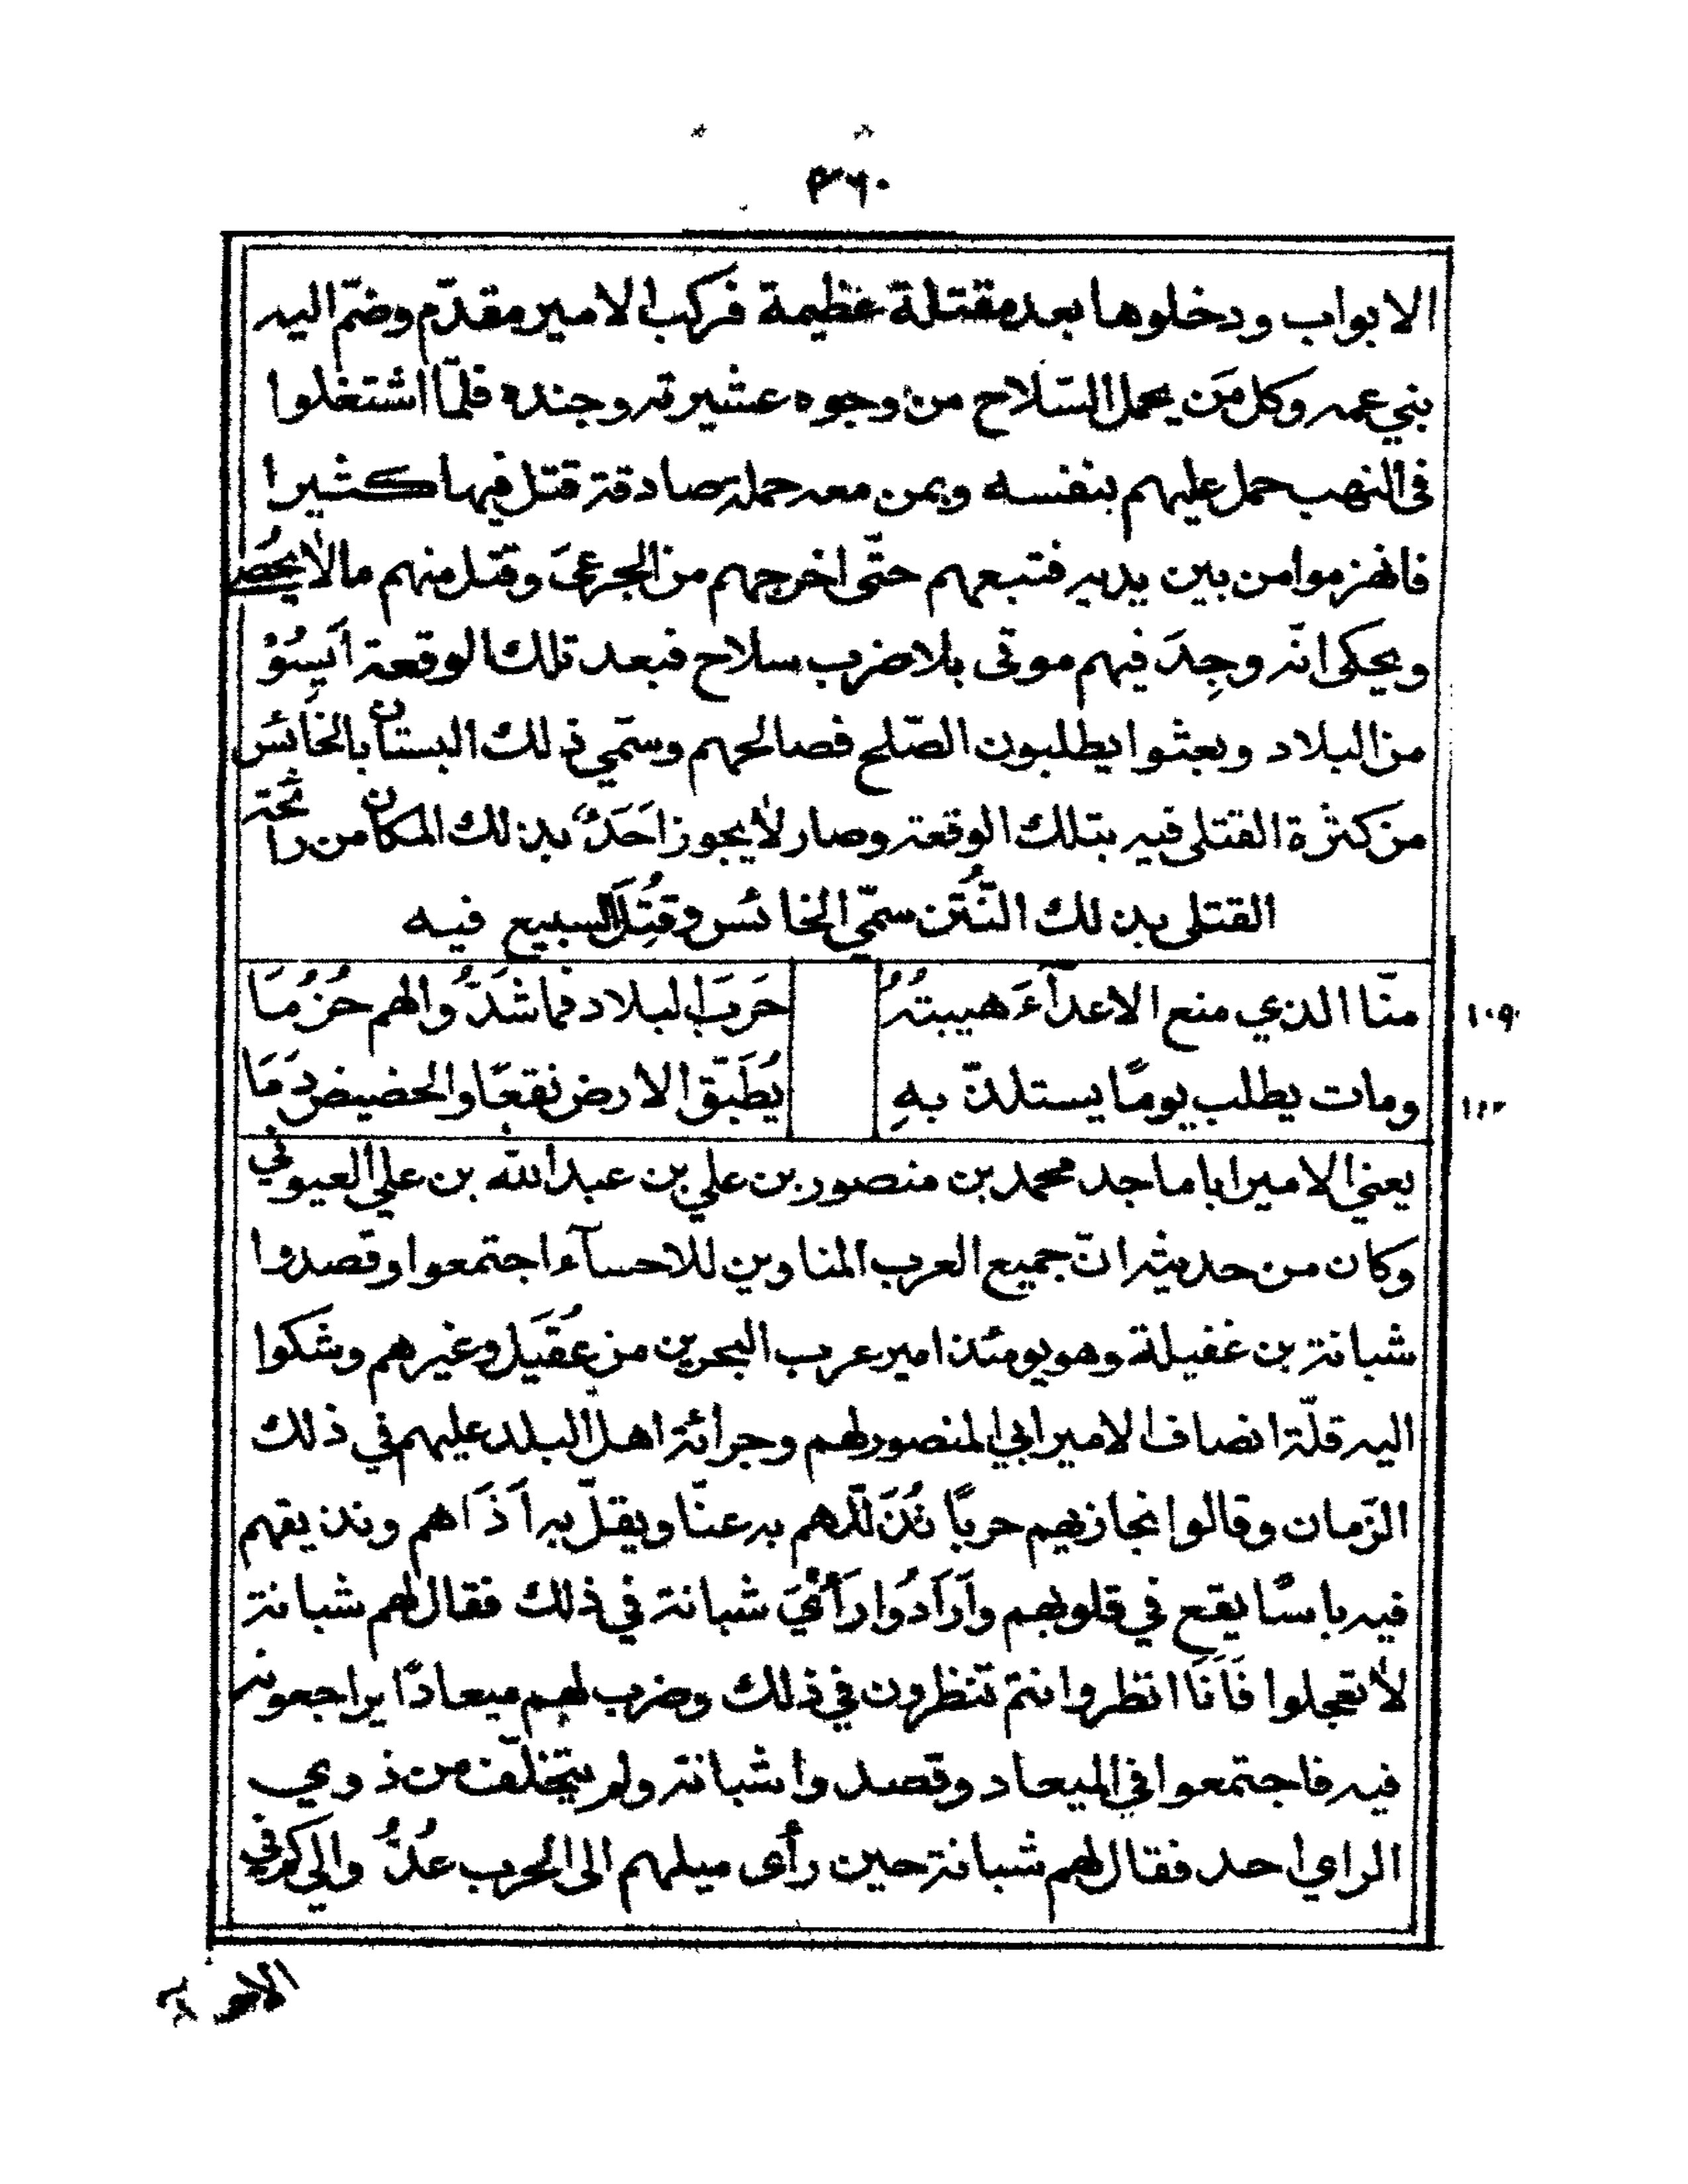 ٣٦٠
الابواب ودخلوها بعد مقتلة عظيمة فركب الامير مقدّم وضمّ اليه
بني عمه وكل مَن يحمل السّلاح من وجوه عشيرته وجنده فلمّا اشتغلوا
فى النهب حمل عليهم بنفسه وبمن معه حملة صادقة قتل فيها كثيرا
فانهزموا من بين يديه فتبعهم حتّى اخرجهم من الجرعىَ وقتل منهم مالا يُحصى
ويحكى انّه وجِدَ فيهم موتى بلا ضرب سلاح فبعد تلك الوقعة اَيِسُوْ
من البلاد وبعثوا يطلبون الصّلح فصالحهم وسمّي ذلك البستان بالخائس
من كثرة القتلى فيه بتلك الوقعة وصار لا يجوز احَدٌ بذلك المكان من رائحة
القتلى بذلك النُّتن سمّي الخائس وقُتِلَ السبيع فيه
منّا الذي منع الاعدآءَ هيبتُهُ حَربَ البلاد فما شدُّوا لهم حُزُمَا ١٠٩
ومات يطلب يومًا يستلذّ بهِ يُطَبّق الارض نقعًا والحضيض دَمَا ١١٠
يعني الامير ابا ماجد محمد بن منصور بن علي بن عبد الله بن علي العيوني
وكان من حديثه انّ جميع العرب المناوين للاحسآء اجتمعوا وقصدوا
شبانة بن غفيلة وهو يومئذ امير عرب البحرين من عُقَيل وغيرهم وشكوا
اليه قلّة انصاف الامير ابي المنصور لهم وجرائة اهل البلد عليهم في ذلك
الزّمان وقالوا نجازيهم حربًا نُذَلّلهم به عنّا ويقلّ به اَذَاهم ونذيقهم
فيه باسًا يقع في قلوبهم واَرَادُوا رَأْيَ شبانة في ذلك فقال لهم شبانة
لا تعجلوا فَاَنَا انظر وانتم تنظرون في ذلك وضرب لهم ميعادًا يراجعونه
فيه فاجتمعوا في الميعاد وقصدوا شبانة ولم يتخلّف من ذوي
الراي احد فقال لهم شبانة حين رأى ميلهم الى الحرب عُدُّوا لي كم في